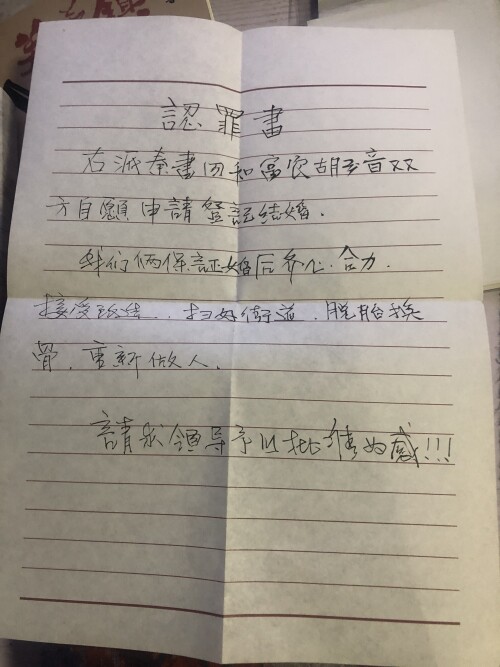 認罪書
右派秦書田和富农胡玉音双
方自願申請登記结婚.
我们俩保証婚后齐心.合力.
接受改造.扫好街道.脱胎换
骨.重新做人.
請求領导予以批准为感!!!